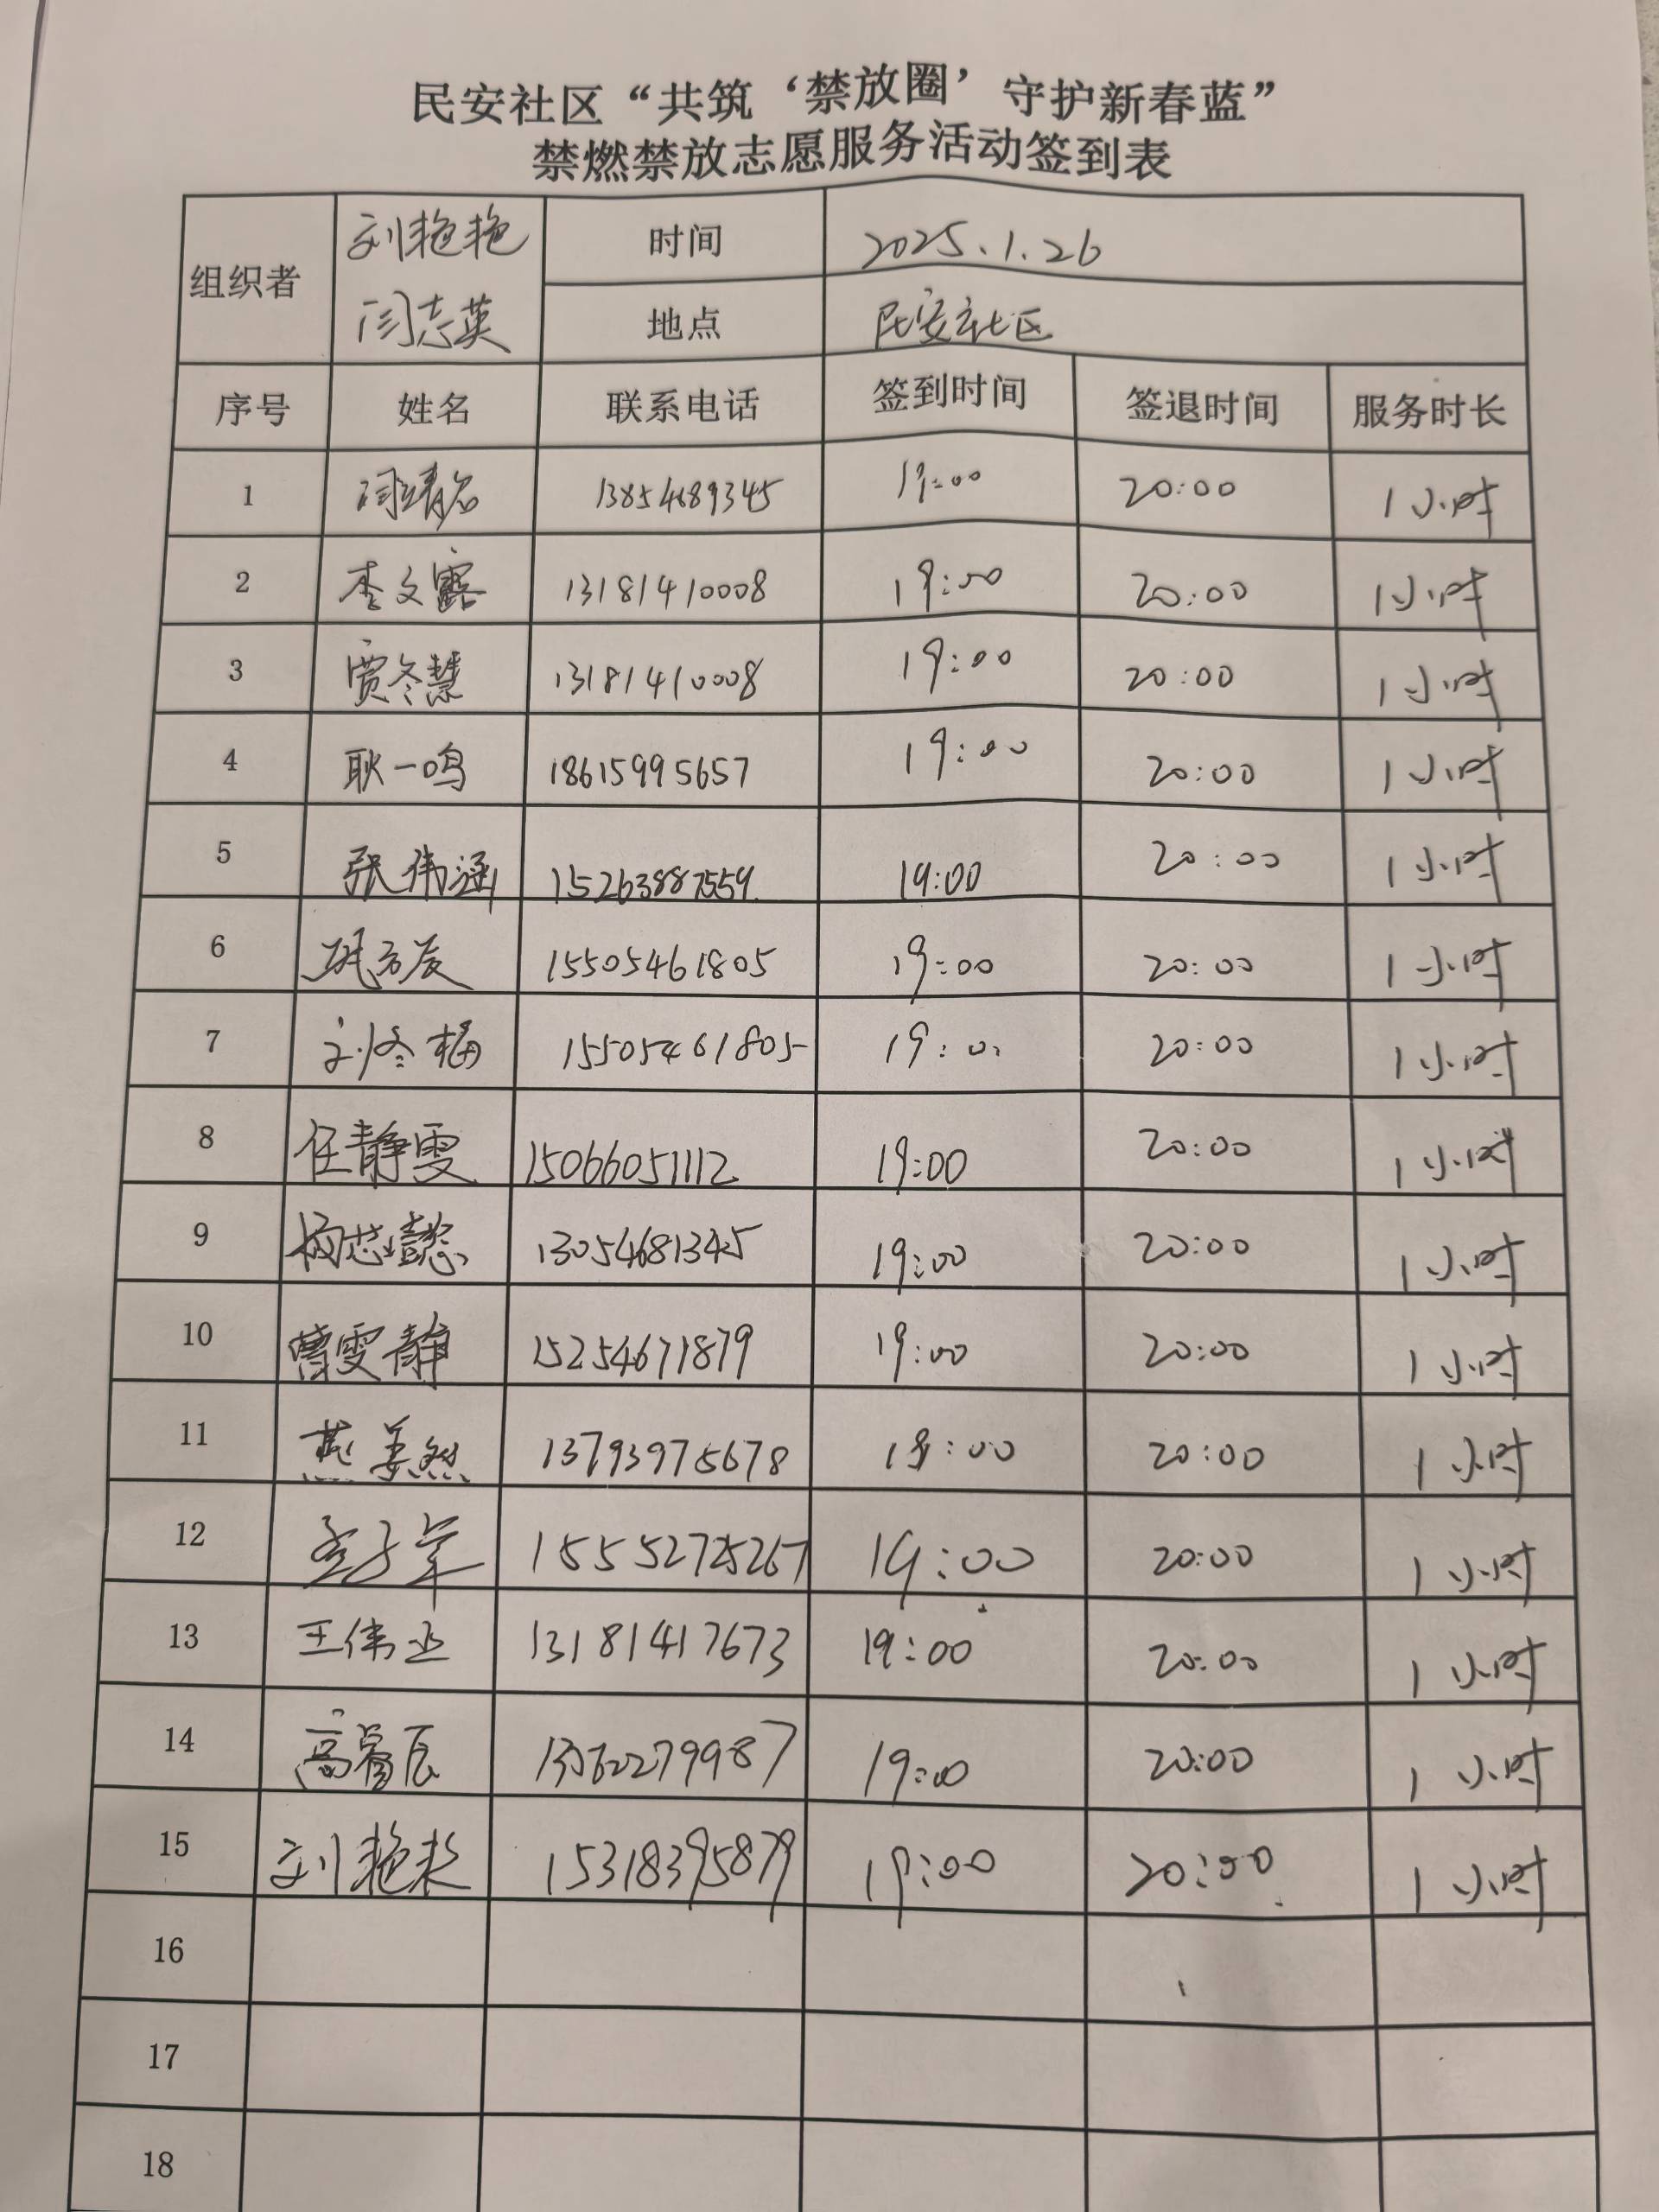 民安社区“共筑‘禁放圈’守护新春蓝”
禁燃禁放志愿服务活动签到表
组织者 刘艳艳 闫志英
时间 2025.1.26
地点 民安社区
序号 姓名 联系电话 签到时间 签退时间 服务时长
1 19:00 20:00 1小时
2 李文露 13181410008 19:00 20:00 1小时
3 贾冬慧 13181410008 19:00 20:00 1小时
4 耿一鸣 18615995657 19:00 20:00 1小时
5 张伟涵 15263887559 19:00 20:00 1小时
6 15505461805 19:00 20:00 1小时
7 刘冬梅 15505461805 19:00 20:00 1小时
8 任静雯 15066051112 19:00 20:00 1小时
9 杨芯懿 13054681345 19:00 20:00 1小时
10 曹雯静 15254671879 19:00 20:00 1小时
11 燕美然 13793975678 20:00 1小时
12 15552725267 19:00 20:00 1小时
13 王伟丞 13181417673 19:00 20:00 1小时
14 19:00 20:00 1小时
15 15318395879 19:00 20:00 1小时
16
17
18